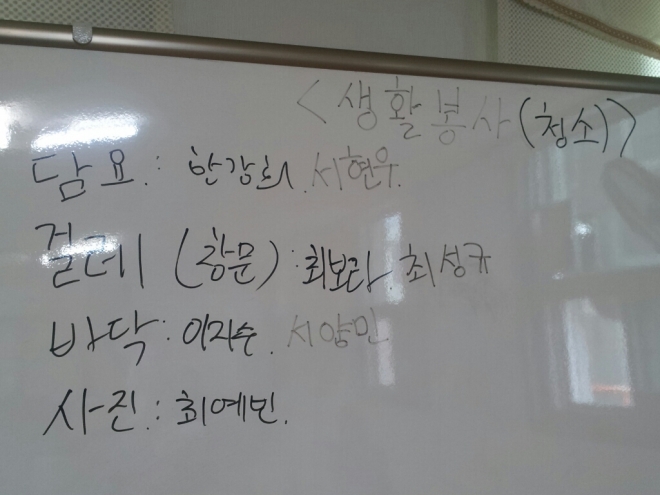 <생활봉사(청소)>
담요: 한강희. 서현우.
걸데(창문): 최보라. 최성규
바닥: 이지수. 서양민
사진: 최예빈.